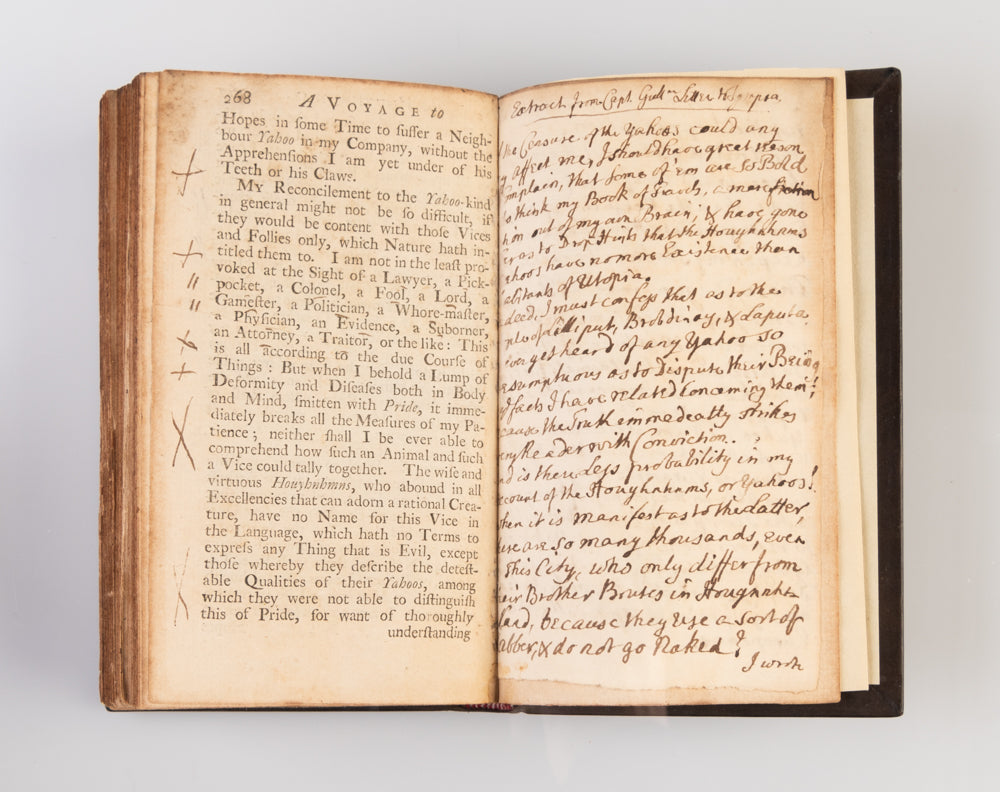 268 A VOYAGE to
Hopes in ſome Time to ſuffer a Neigh-
bour Yahoo in my Company, without the
Apprehenſions I am yet under of his
Teeth or his Claws.
MY Reconcilement to the Yahoo-kind
in general might not be ſo difficult, if
they would be content with thoſe Vices
and Follies only, which Nature hath in-
titled them to. I am not in the leaſt pro-
voked at the Sight of a Lawyer, a Pick-
pocket, a Colonel, a Fool, a Lord, a
Gameſter, a Politician, a Whore-maſter,
a Phyſician, an Evidence, a Suborner,
an Attorney, a Traitor, or the like: This
is all according to the due Courſe of
Things: But when I behold a Lump of
Deformity and Diſeaſes both in Body
and Mind, ſmitten with Pride, it imme-
diately breaks all the Meaſures of my Pa-
tience; neither ſhall I be ever able to
comprehend how ſuch an Animal and ſuch
a Vice could tally together. The wiſe and
virtuous Houyhnhmns, who abound in all
Excellencies that can adorn a rational Crea-
ture, have no Name for this Vice in
the Language, which hath no Terms to
expreſs any Thing that is Evil, except
thoſe whereby they deſcribe the deteſt-
able Qualities of their Yahoos, among
which they were not able to diſtinguiſh
this of Pride, for want of thoroughly
underſtanding
Extract from Capt. Gull.rs Letter to Sympson
the Censure of the Yahoos could any
affect me, I should have great reason
omplain, that some of 'em are so Bold
to think my Book of Travels, a mere fiction
out of my own Brain; & have gone
as to Drop Hints that the Houyhnhnms
ahoos have no more Existence than
abitants of Utopia.
deed, I must confess that as to the
ople of Lilliput, Brobdinag, & Laputa
ever yet heard of any Yahoo so
esumptuous as to Dispute their Being
facts I have related Concerning them!
cause the Truth immedeatly strikes
ery Reader with Conviction.
nd is there less probability in my
ccount of the Houyhnhnms, or Yahoos!
hen it is manifest as to the Latter,
ere are so many thousands, Even
This City, who only differ from
heir Brother Brutes in
land, because they use a sort of
abber, & do not go Naked!
I wrote